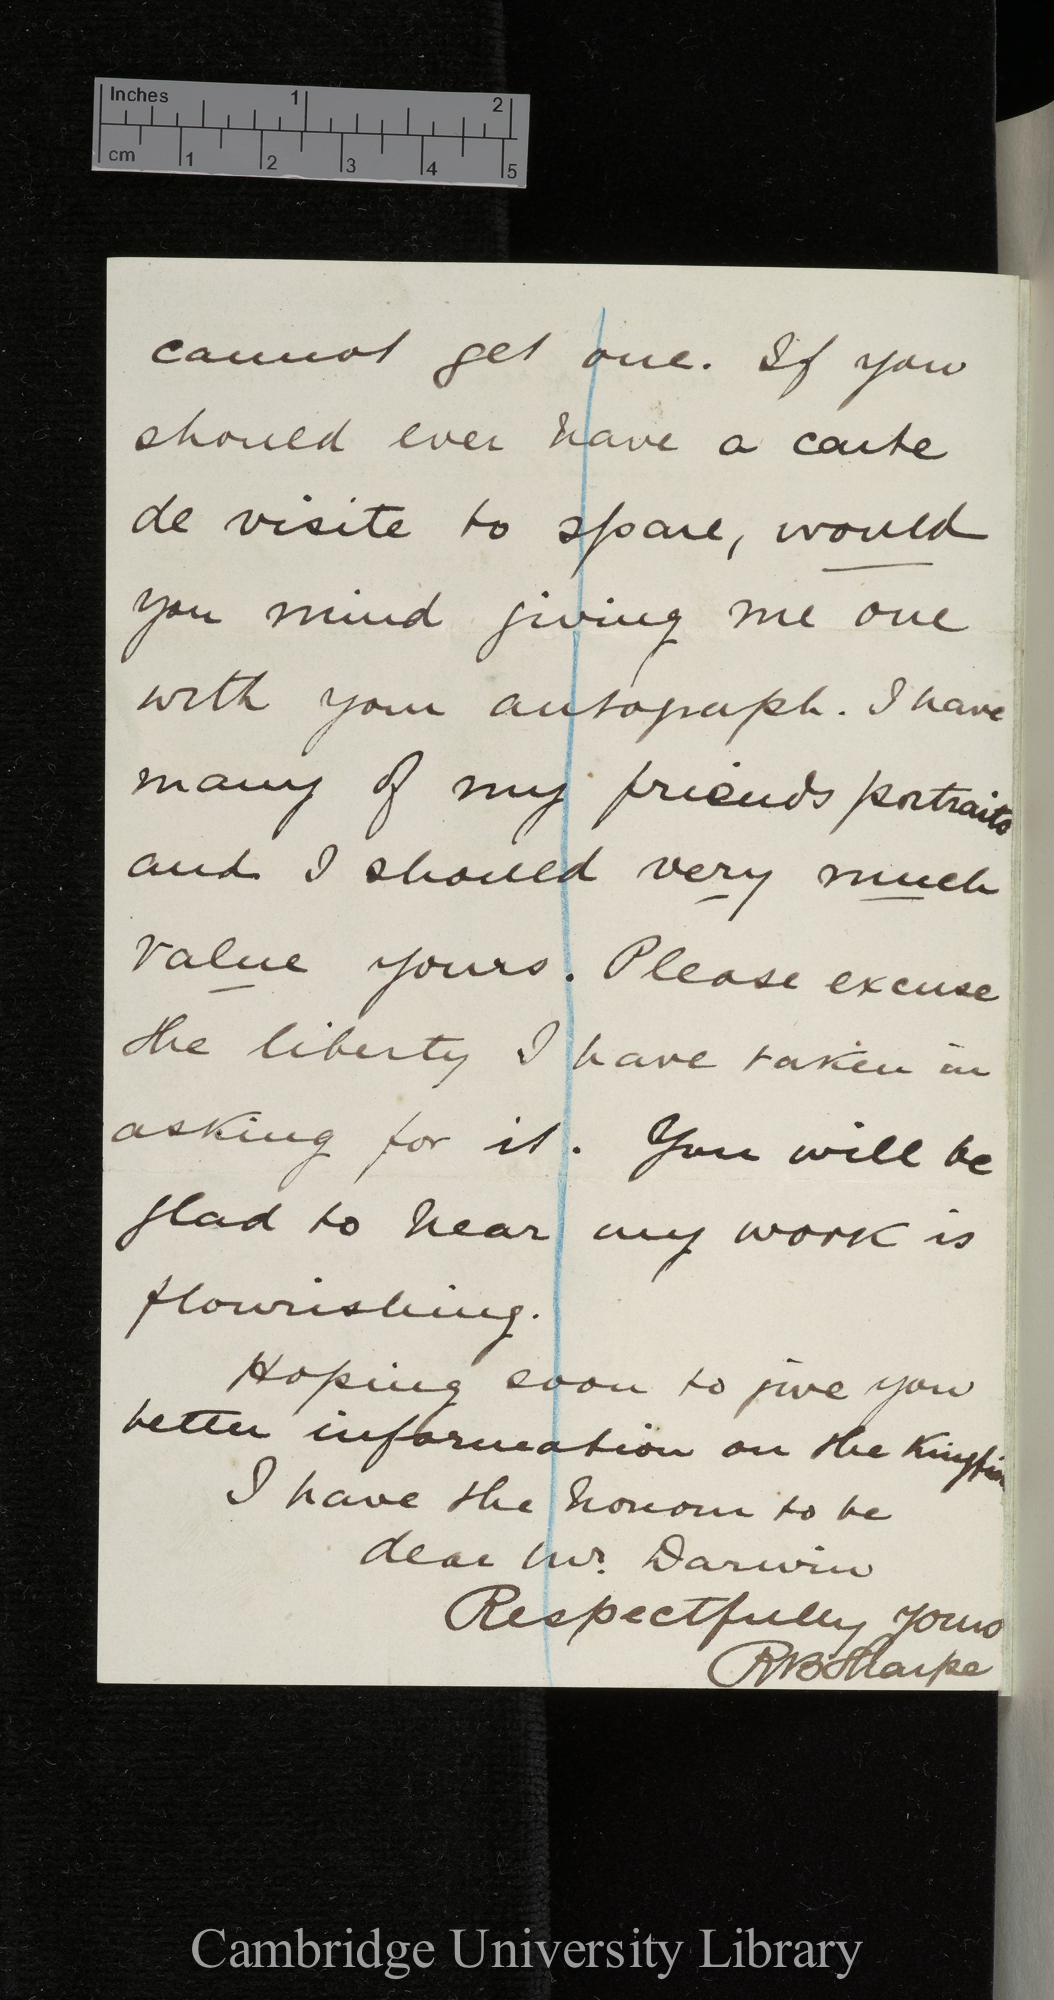 Inches 1 2
cm 1 2 3 4 5
cannot get one. If you
should ever have a carte
de visite to spare, would
you mind giving me one
with your autograph. I have
many of my friends portraits
and I should very much
value yours. Please excuse
the liberty I have taken in
asking for it. You will be
glad to hear my work is
flourishing.
Hoping soon to give you
better information on the
I have the honour to be
dear Mr. Darwin
Respectfully yours
RBSharpe
Cambridge University Library